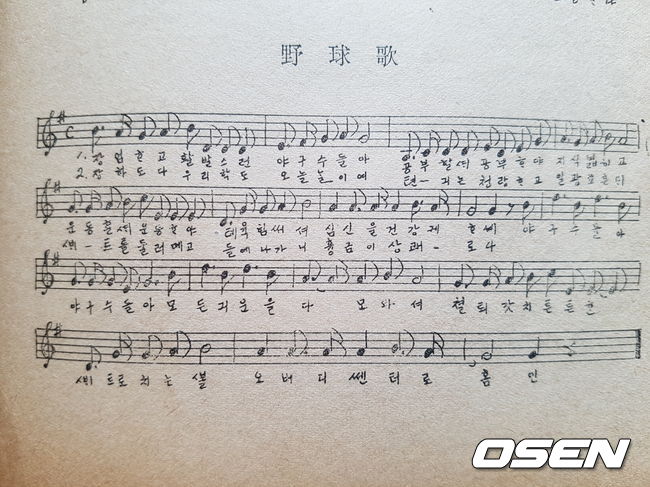 野球歌
C
1. 장엄혼고 활발스런 야구수들아 공부할셔 공부하야 지식넓히고
2. 장하도다 우리학도 오늘놀이예 텬긔는 청랑한고 일광은
운동할셰 운동하야 톄육힘써셔 심신을건강케 하세 야구수들아
베-트를둘러메고 들에나가니 흥금이상쾌-로다
야구수들아모든긔운을 다 모와셔 쳘퇴갓치튼튼한
베트로치는볼 오버디쎈터로 홈인
OSEN